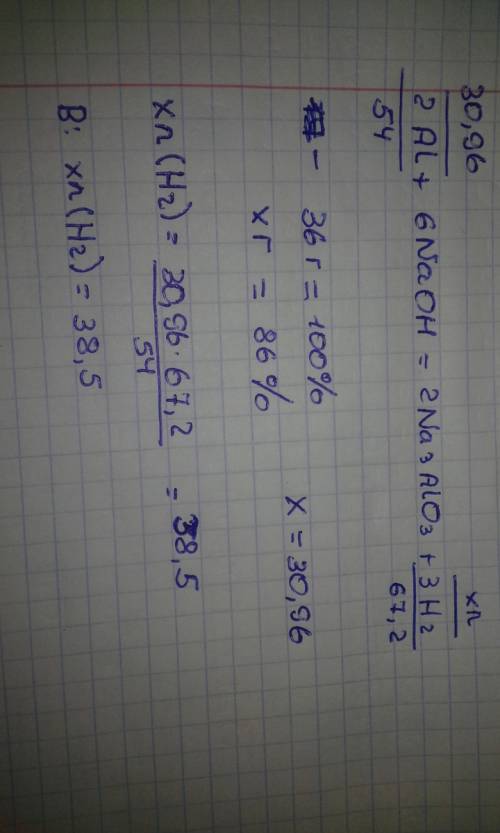 30,96 xл
2Al + 6NaOH = 2Na3AlO3 + 3H2
54 67,2
- 36 г = 100%
xг = 86% x = 30,96
xл(H2) = 30,96·67,2 / 54 = 38,5
В: xл(H2) = 38,5